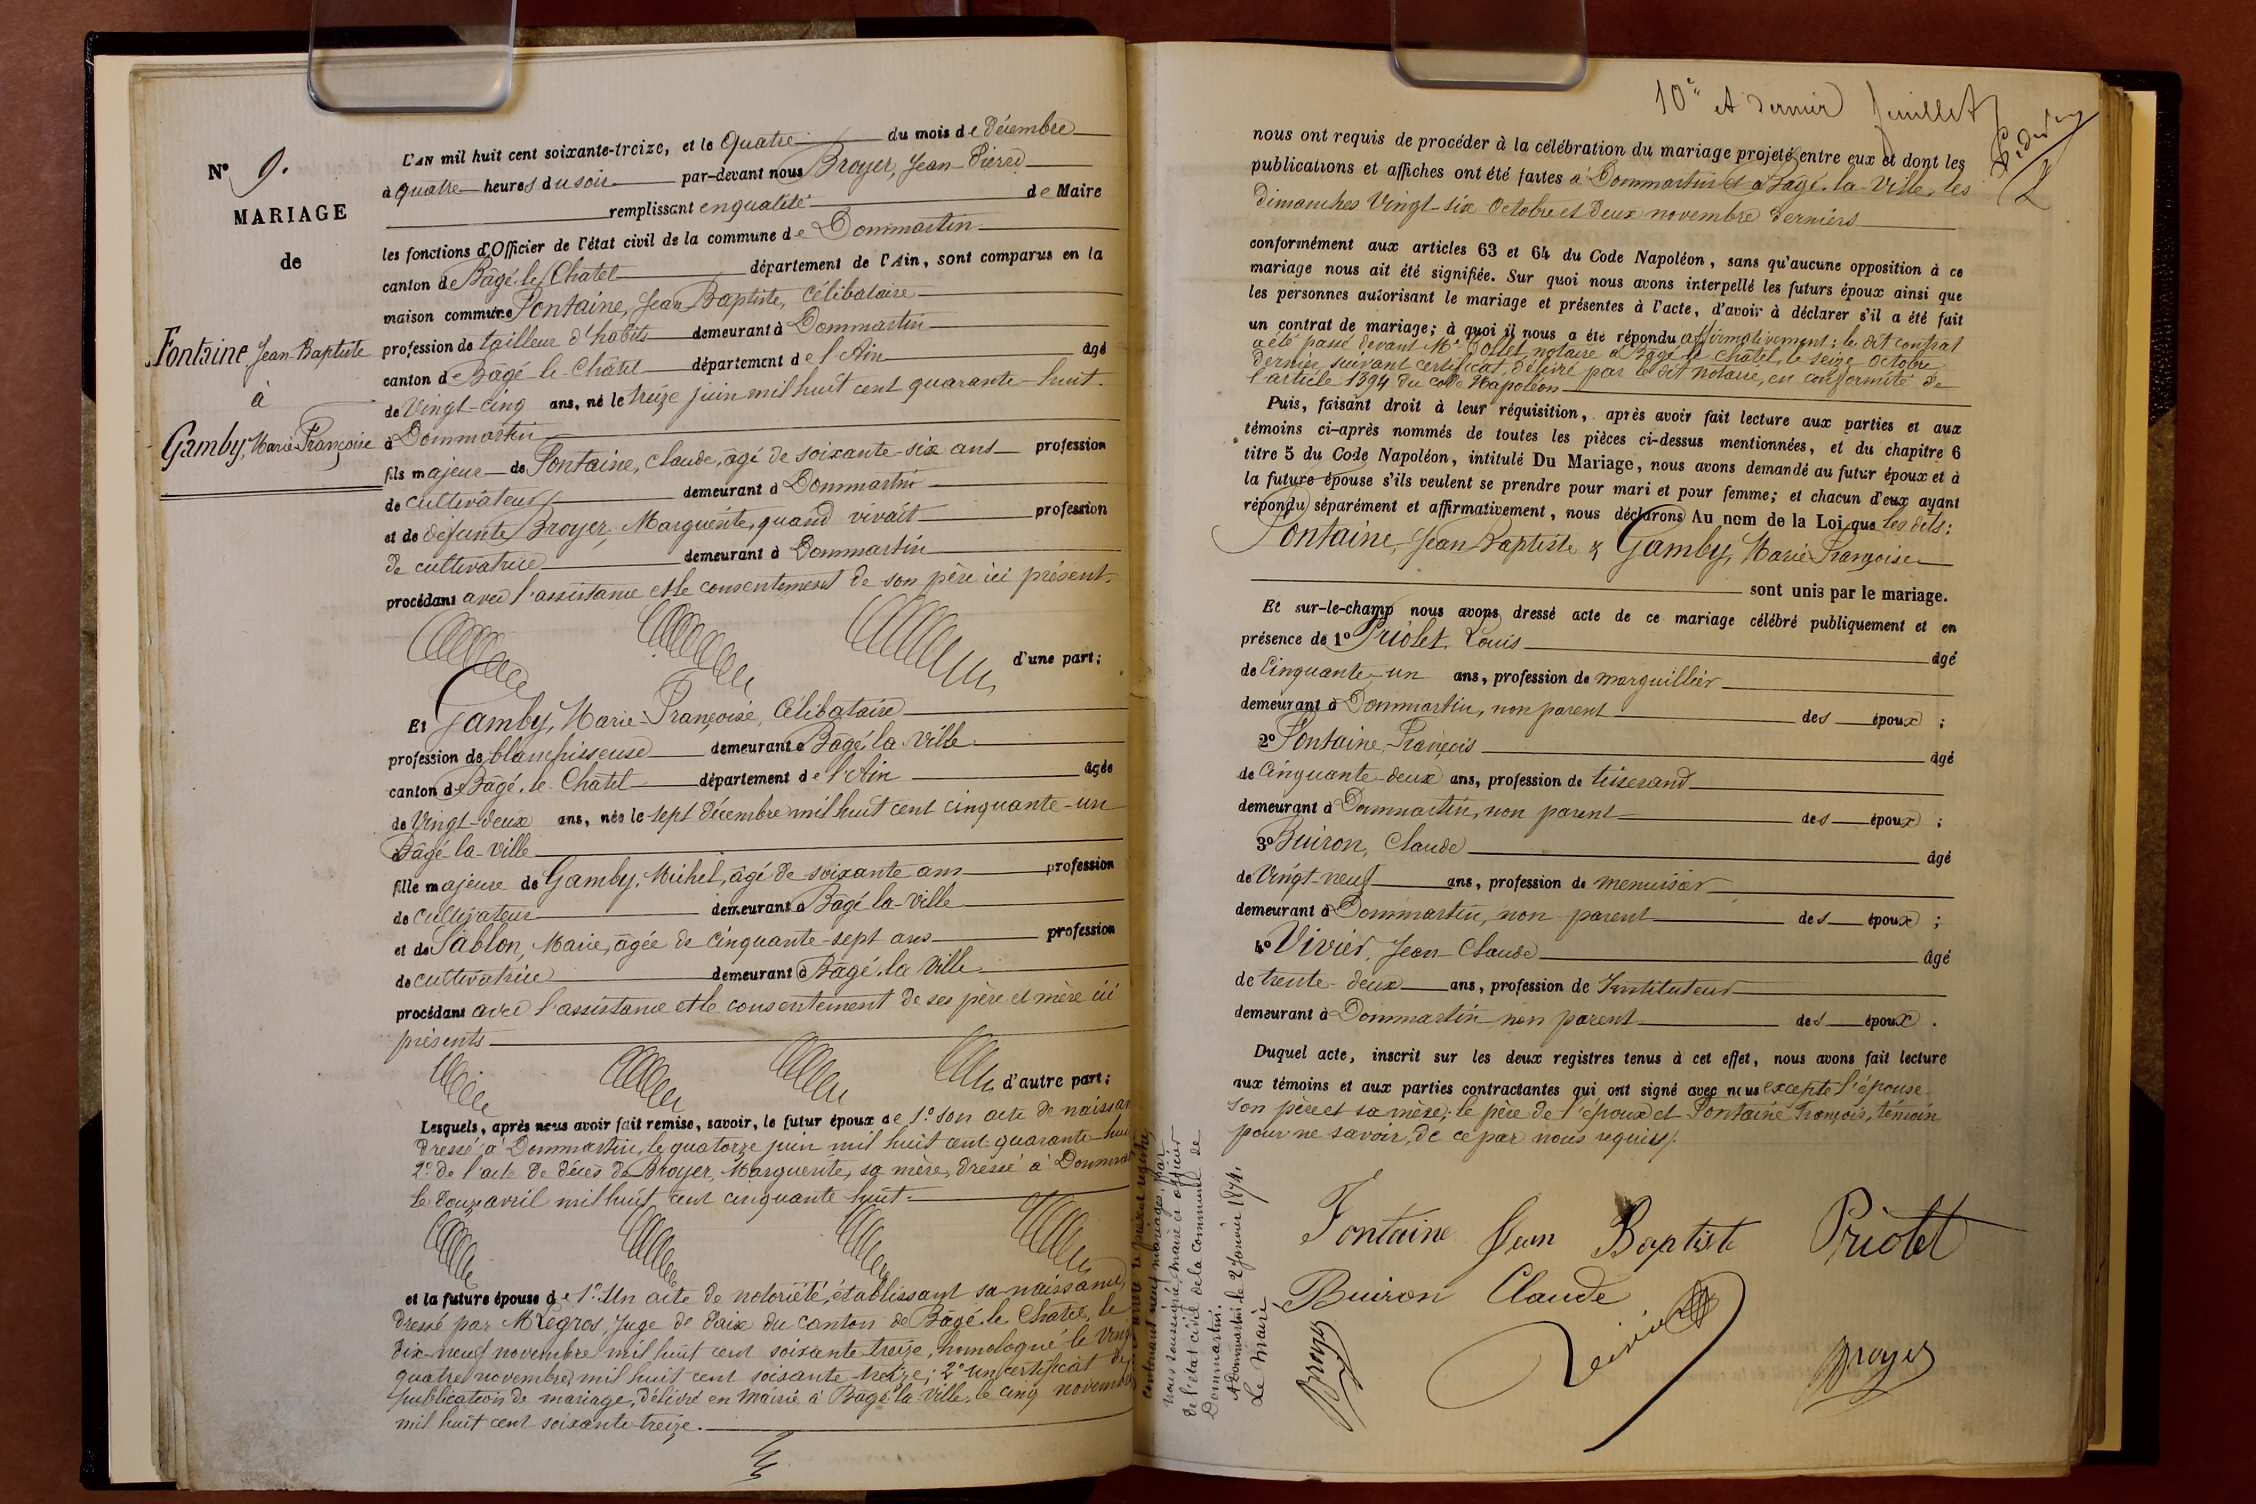 N° 9.
MARIAGE
de
Fontaine Jean-Baptiste
à
Gamby, Marie Françoise
L'AN mil huit cent soixante-treize, et le Quatre du mois de Décembre
à quatre heures du soir par-devant nous Broyer, Jean Pierre
remplissant en qualité de Maire
les fonctions d'Officier de l'état civil de la commune de Dommartin
canton de Bâgé-le-Châtel département de l'Ain, sont comparus en la
maison commune Fontaine, Jean Baptiste, célibataire
profession de tailleur d'habits demeurant à Dommartin
canton de Bâgé-le-Châtel département de l'Ain âgé
de Vingt-cinq ans, né le treize juin mil huit cent quarante-huit
à Dommartin
fils majeur de Fontaine, Claude, âgé de soixante-six ans profession
de cultivateur demeurant à Dommartin
et de défunte Broyer, Marguerite, quand vivait profession
de cultivatrice demeurant à Dommartin
procédant avec l'assistance et le consentement de son père ici présent.
d'une part;
Et Gamby, Marie-Françoise, Célibataire
profession de blanchisseuse demeurant à Bâgé-la-Ville
canton de Bâgé-le-Châtel département de l'Ain âgée
de Vingt-deux ans, née le sept décembre mil huit cent cinquante-un
à Bâgé-la-Ville
fille majeure de Gamby, Michel, âgé de soixante ans profession
de cultivateur demeurant à Bâgé-la-Ville
et de Sablon, Marie, âgée de cinquante-sept ans profession
de cultivatrice demeurant à Bâgé-la-Ville
procédant avec l'assistance et le consentement de ses père et mère ici
présents
d'autre part;
Lesquels, après nous avoir fait remise, savoir, le futur époux de 1° son acte de naissan
dressé à Dommartin, le quatorze juin mil huit cent quarante hui
2° de l'acte de décès de Broyer, Marguerite, sa mère, dressé à Dommar
le douze avril mil huit cent cinquante huit
et la future épouse de 1° Un acte de notoriété, établissant sa naissance
dressé par M Legros, Juge de Paix du canton de Bâgé-le-Châtel, le
dix-neuf novembre mil huit cent soixante-treize, homologué le Vingt
quatre novembre mil huit cent soixante-treize; 2° Un certificat de
publication de mariage, délivré en Mairie à Bâgé-la-Ville, le cinq novembre
mil huit cent soixante-treize.
10e et dernier feuillet
nous ont requis de procéder à la célébration du mariage projeté entre eux et dont les
publications et affiches ont été faites à Dommartin et à Bâgé-la-Ville, les
dimanches Vingt-six Octobre et Deux novembre derniers
conformément aux articles 63 et 64 du Code Napoléon, sans qu'aucune opposition à ce
mariage nous ait été signifiée. Sur quoi nous avons interpellé les futurs époux ainsi que
les personnes autorisant le mariage et présentes à l'acte, d'avoir à déclarer s'il a été fait
un contrat de mariage; à quoi il nous a été répondu affirmativement; le dit contrat
a été passé devant Me notaire à Bâgé-le-Châtel, le seize Octobre
dernier, suivant certificat, délivré par le dit notaire, en conformité de
l'article 1394 du code Napoléon
Puis, faisant droit à leur réquisition, après avoir fait lecture aux parties et aux
témoins ci-après nommés de toutes les pièces ci-dessus mentionnées, et du chapitre 6
titre 5 du Code Napoléon, intitulé Du Mariage, nous avons demandé au futur époux et à
la future épouse s'ils veulent se prendre pour mari et pour femme; et chacun d'eux ayant
répondu séparément et affirmativement, nous déclarons Au nom de la Loi que les dits:
Fontaine, Jean Baptiste & Gamby, Marie Françoise
sont unis par le mariage.
Et sur-le-champ nous avons dressé acte de ce mariage célébré publiquement et en
présence de 1° Priolet, Louis âgé
de Cinquante-un ans, profession de marguillier
demeurant à Dommartin, non parent des époux;
2° Fontaine, François âgé
de Cinquante-deux ans, profession de tisserand
demeurant à Dommartin, non parent des époux;
3° Buiron, Claude âgé
de Vingt-neuf ans, profession de menuisier
demeurant à Dommartin, non parent des époux;
4° Vivier, Jean Claude âgé
de trente-deux ans, profession de Instituteur
demeurant à Dommartin non parent des époux.
Duquel acte, inscrit sur les deux registres tenus à cet effet, nous avons fait lecture
aux témoins et aux parties contractantes qui ont signé avec nous excepté l'épouse
son père et sa mère; le père de l'époux et Fontaine François, témoin
pour ne savoir, de ce par nous requis.
Fontaine Jean Baptiste Priolet
Buiron Claude
Vivier
Broyer
le présent registre
contenant neuf mariages, par
nous soussigné, maire et officier
de l'état civil de la commune de
Dommartin.
A Dommartin le 2 Janvier 1874.
Le Maire
Broyer